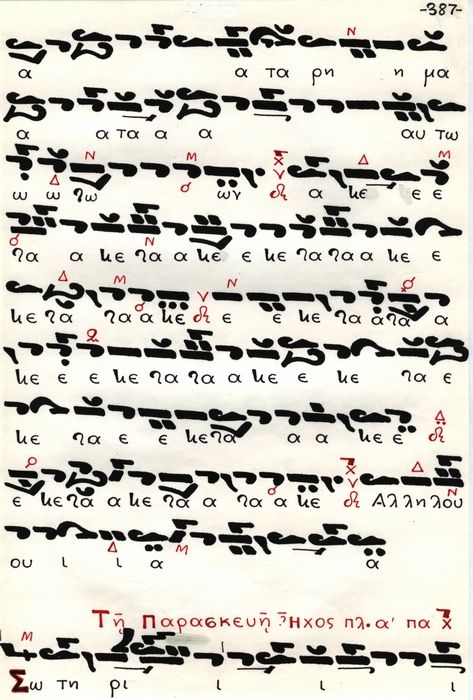 -387-
α α τα ρη η μα
α α τα α α αυ τω
ω ω τω ων α κε ε ε
τα α κε τα α κε ε κε τα τα α κε ε
κε τα τα α κε ε ε κε τα α τα α
κε ε ε κε τα τα α κε ε κε τα ε
κε τα ε ε κε τα α α κε ε
ε κε τα α κε τα α τα α κε ε Αλληλου
ου ι ι α α
Τῇ Παρασκευῇ Ἦχος πλ. α' πα
Σω τη ρι ι ι ι